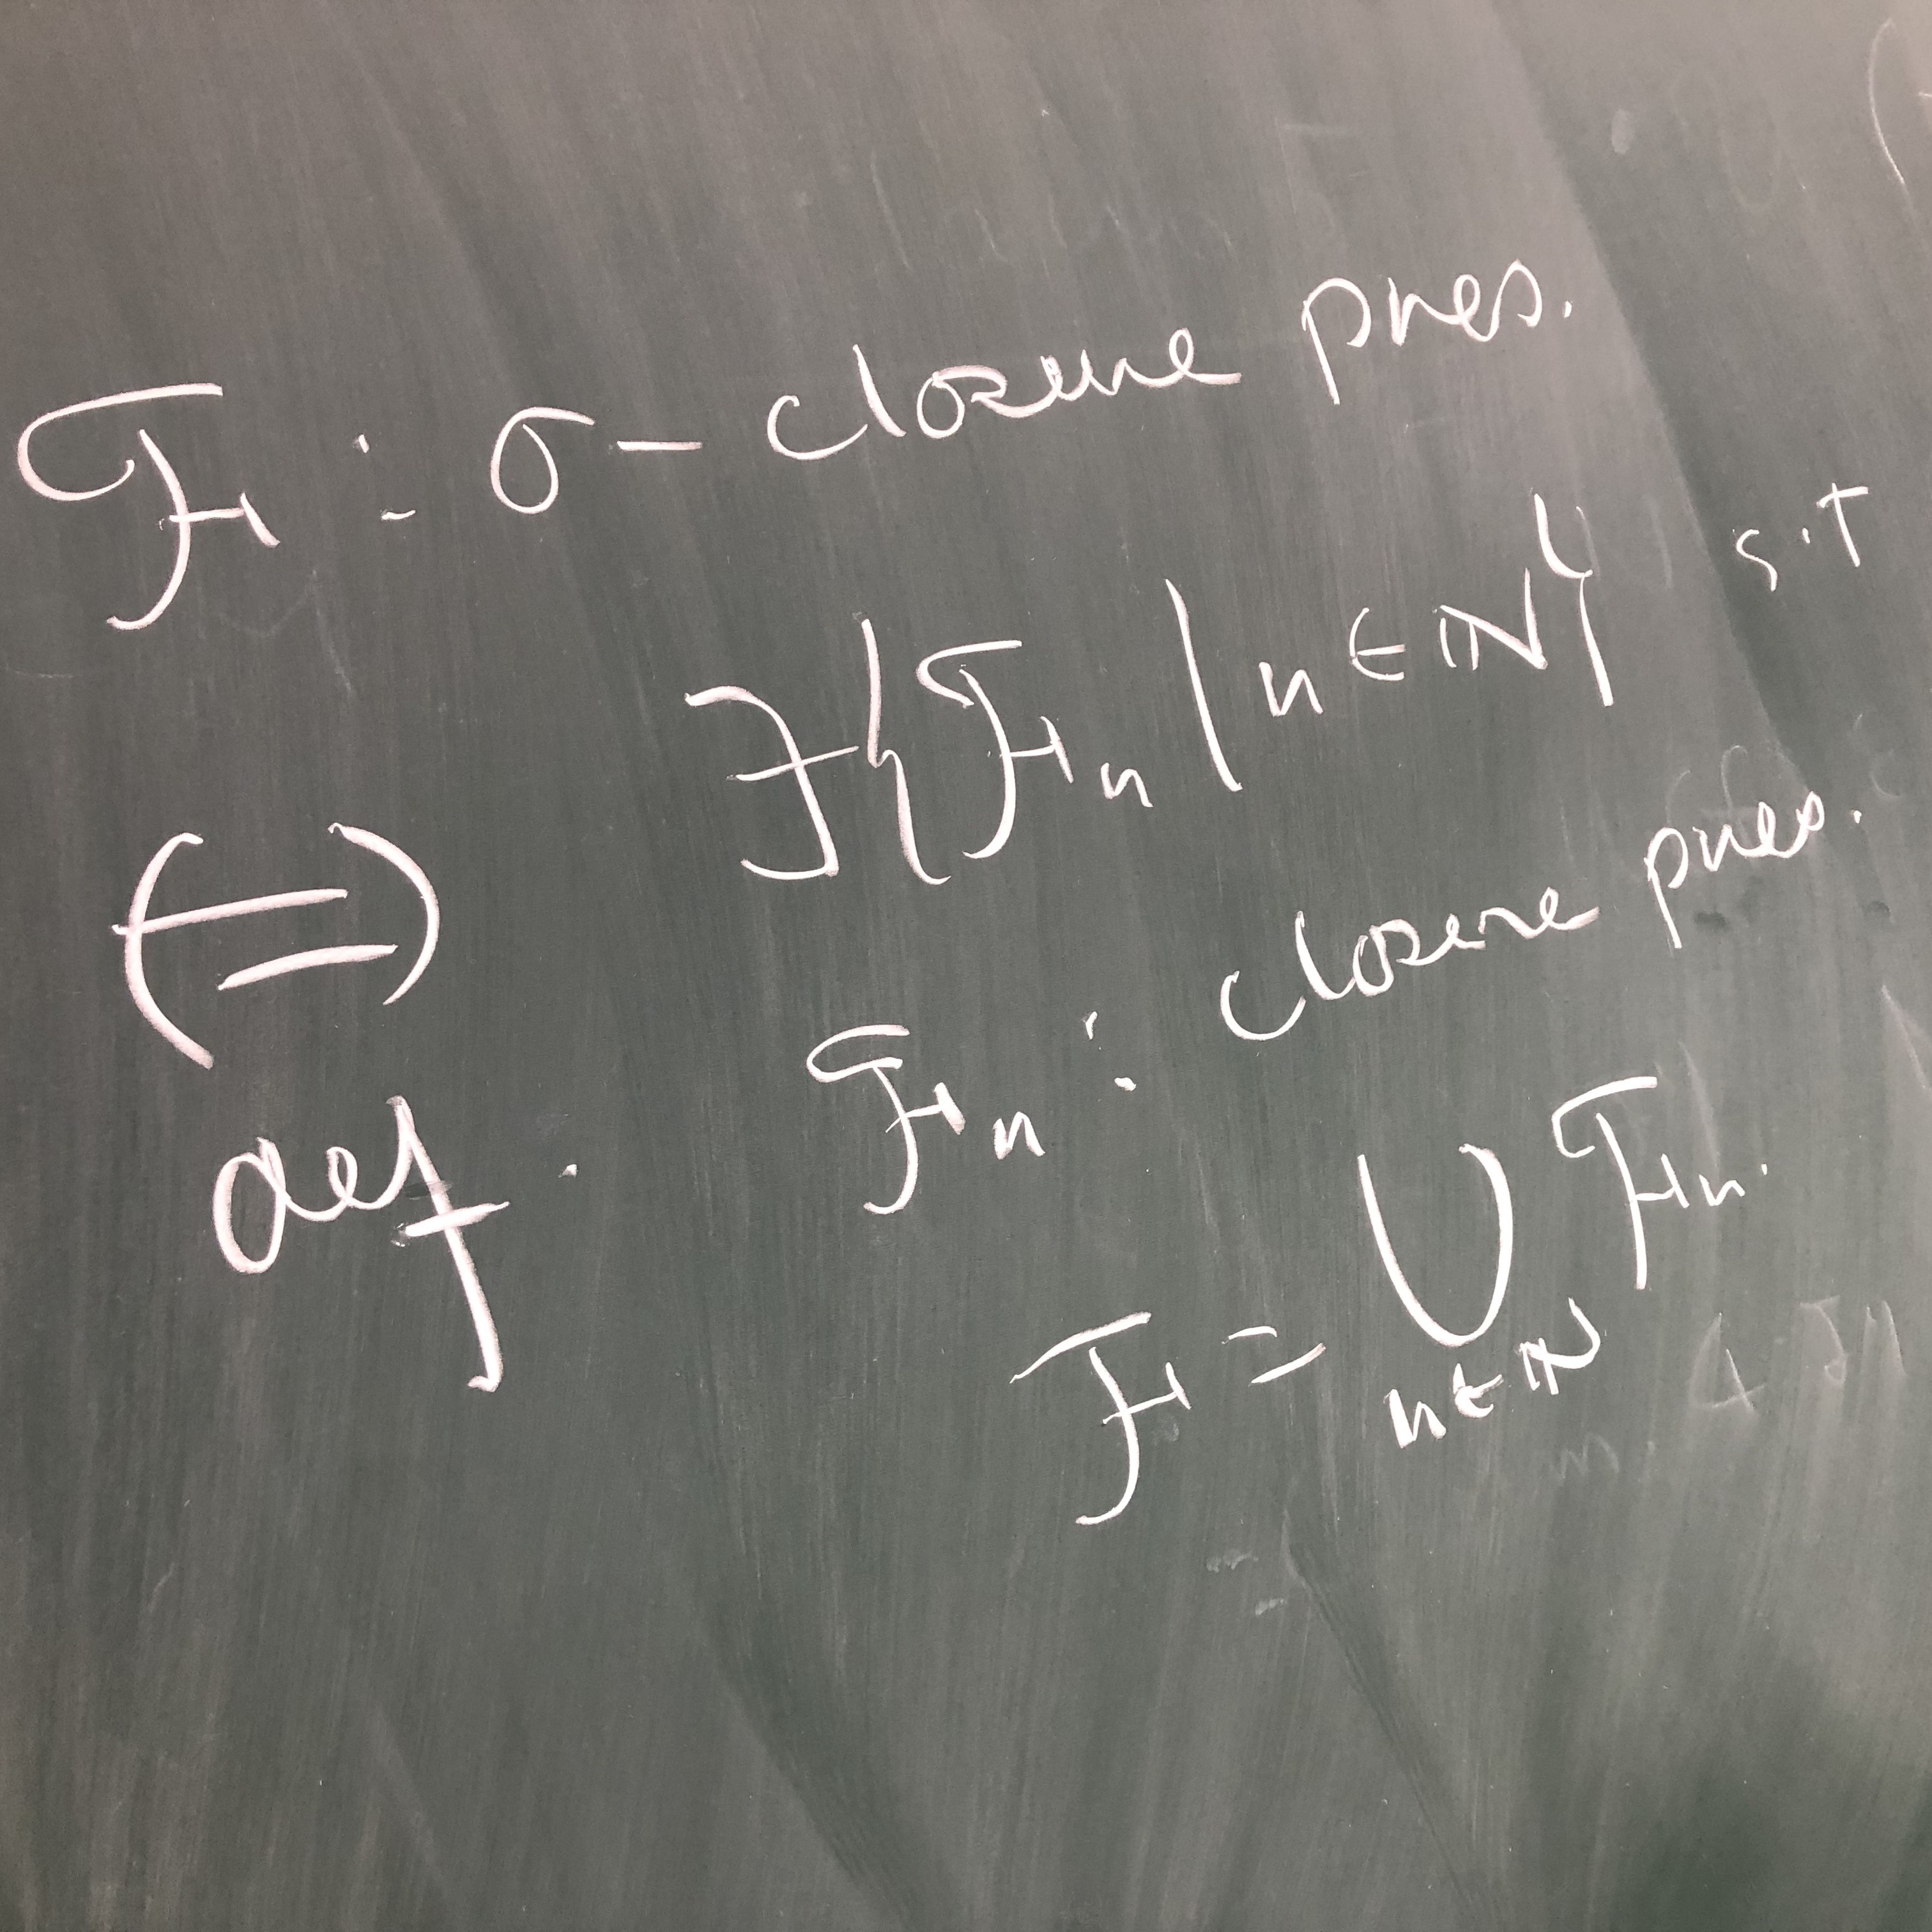 ℱ : σ- closure pres.
⟺ def. ∃{ℱₙ | n ∈ ℕ} s.t
ℱₙ : closure pres.
ℱ = ⋃_{n∈ℕ} ℱₙ.